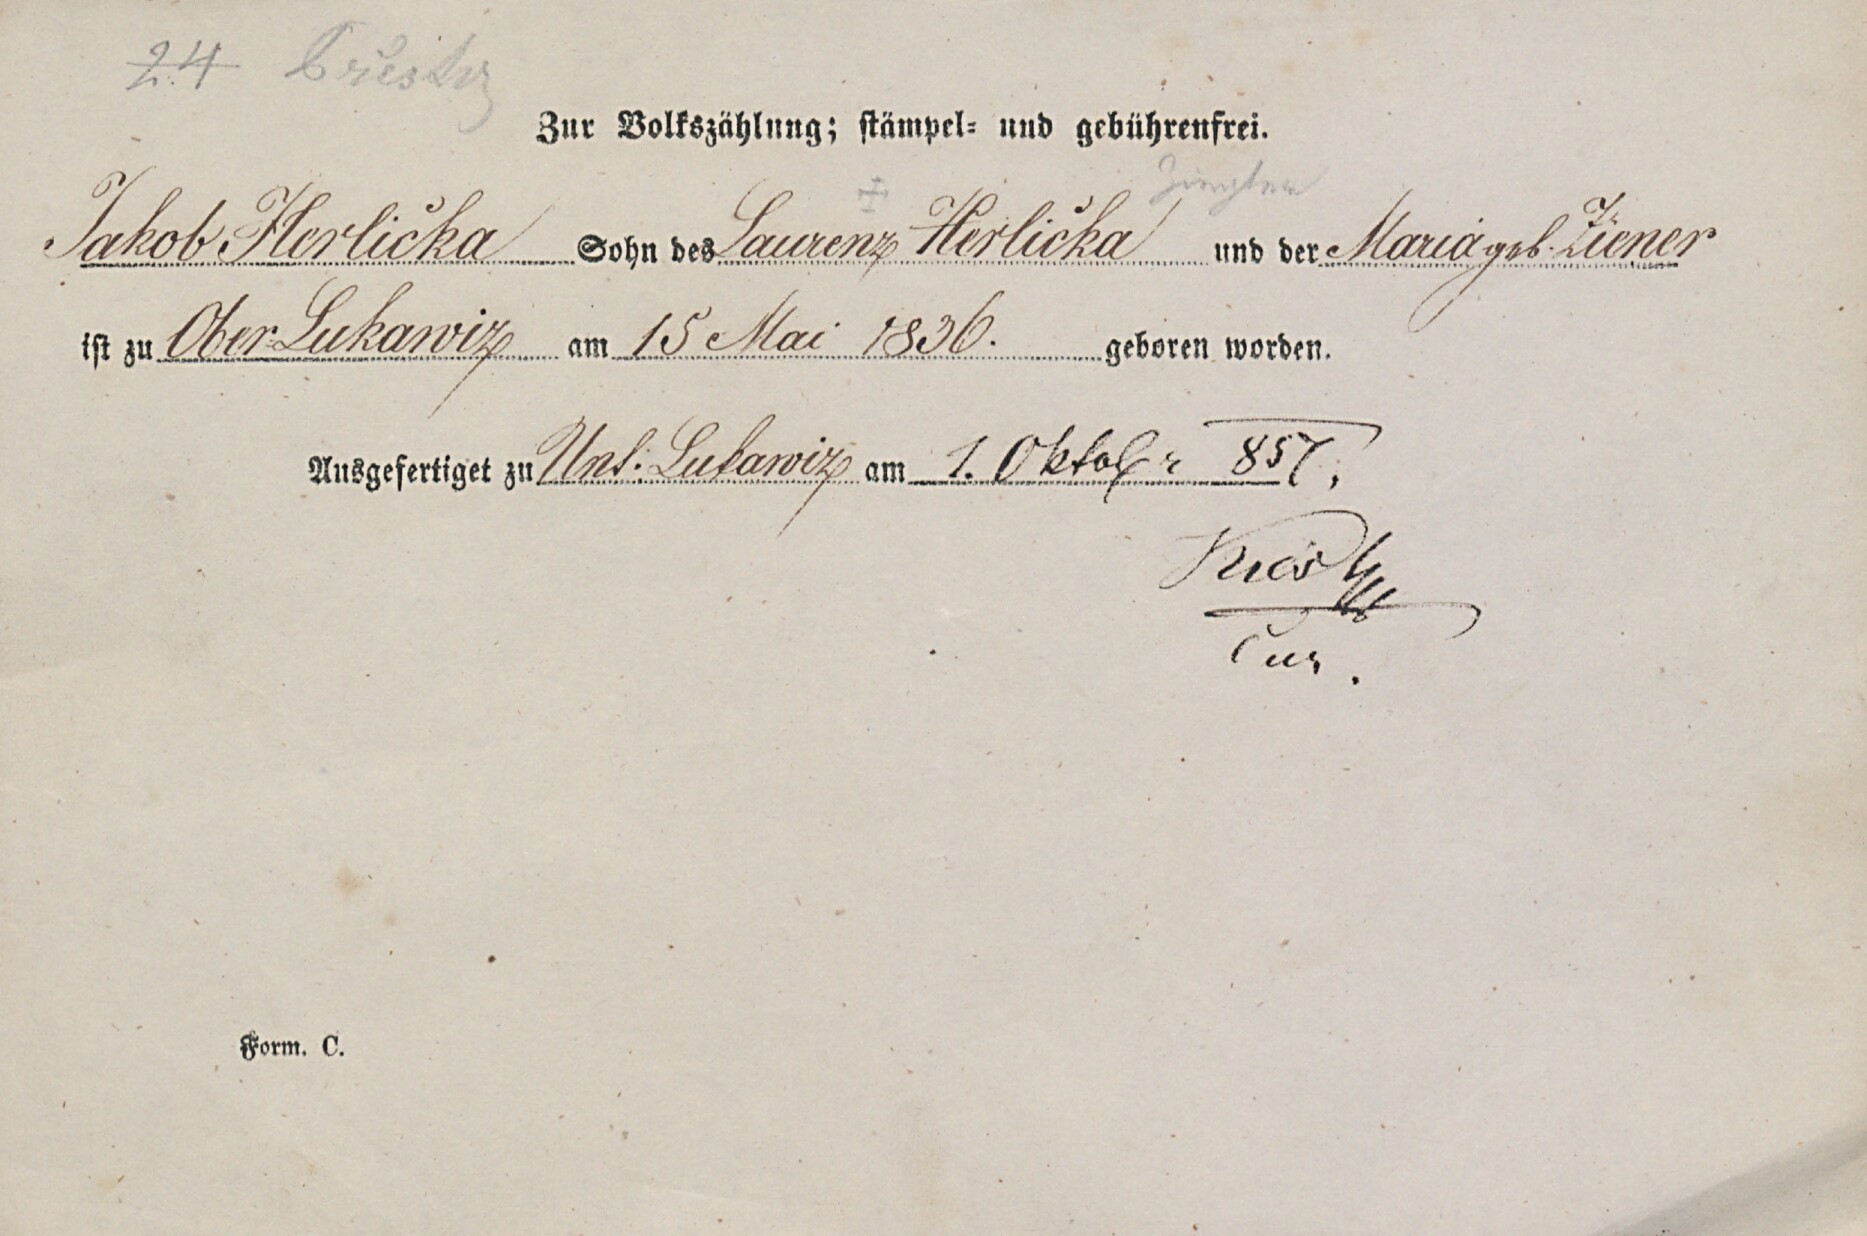 24
Zur Volkszählung; stämpel- und gebührenfrei.
Jakob Herlička Sohn des Laurenz Herlička und der Maria geb. Ziener
ist zu Ober-Lukawiz am 15 Mai 1836. geboren worden.
Ausgefertiget zu Unt. Lukawiz am 1. Oktober 857.
Form. C.